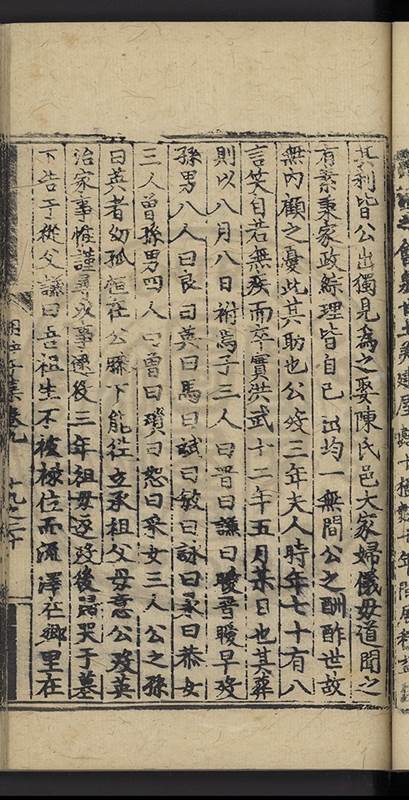 其利皆公出獨見為之娶陳氏邑大家婦儀母道聞之
有素秉家政綜理皆自己出均一無間公之酬酢世故
無内顧之憂此其助也公歿三年夫人時年七十有八
言笑自若無疾而卒實洪武十二年五月某日也其葬
則以八月八日祔焉子三人曰晋曰謙曰曖晋曖早歿
孫男八人曰良曰英曰馬曰斌曰敏曰詠曰永曰恭女
三人曾孫男四人曰曹曰瓚曰恕曰采女三人公之孫
曰英者幼孤恒在公膝下能徃立承祖父母意公歿英
治家事惟謹尋以事遷後三年祖母逐歿後歸哭于墓
下告于從父謙曰吾祖生不被祿位而流澤在鄉里在
集卷九
十九之二十